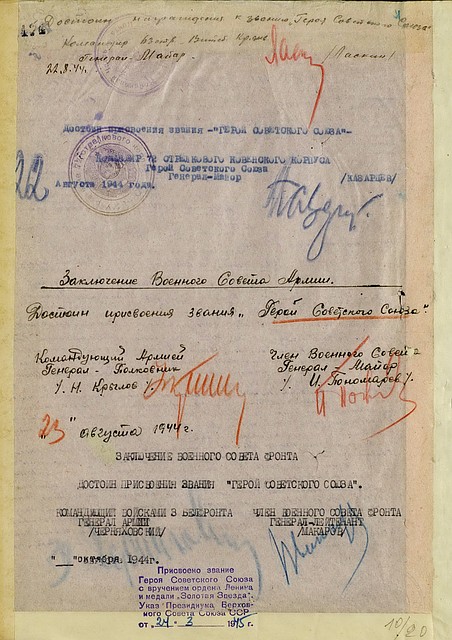 Достоин награждения к званию "Герой Советского Союза"
Генерал-Майор
/Ласкин/
22.8.44.
Достоин присвоения звания -"ГЕРОЙ СОВЕТСКОГО СОЮЗА"-
КОМАНДИР 72 СТРЕЛКОВОГО КОВЕНСКОГО КОРПУСА
Герой Советского Союза
Генерал-Майор
/КАЗАРЦЕВ/
22 Августа 1944 года.
Заключение Военного Совета Армии.
Достоин присвоения звания „Герой Советского Союза".
Командующий Армией
Генерал-Полковник
/. Н. Крылов /.
Член Военного Совета
Генерал-Майор
/. И. Пономарев /.
"23" Августа 1944 г.
ЗАКЛЮЧЕНИЕ ВОЕННОГО СОВЕТА ФРОНТА
ДОСТОИН ПРИСВОЕНИЯ ЗВАНИЯ "ГЕРОЙ СОВЕТСКОГО СОЮЗА".
КОМАНДУЮЩИЙ ВОЙСКАМИ 3 БЕЛФРОНТА
ГЕНЕРАЛ АРМИИ
/ЧЕРНЯХОВСКИЙ/
ЧЛЕН ВОЕННОГО СОВЕТА ФРОНТА
ГЕНЕРАЛ-ЛЕЙТЕНАНТ
/МАКАРОВ/
"__"октября 1944г.
Присвоено звание
Героя Советского Союза
с вручением ордена Ленина
и медали „Золотая Звезда".
Указ Президиума Верхов-
ного Совета Союза ССР
от „24" 3 1945г.